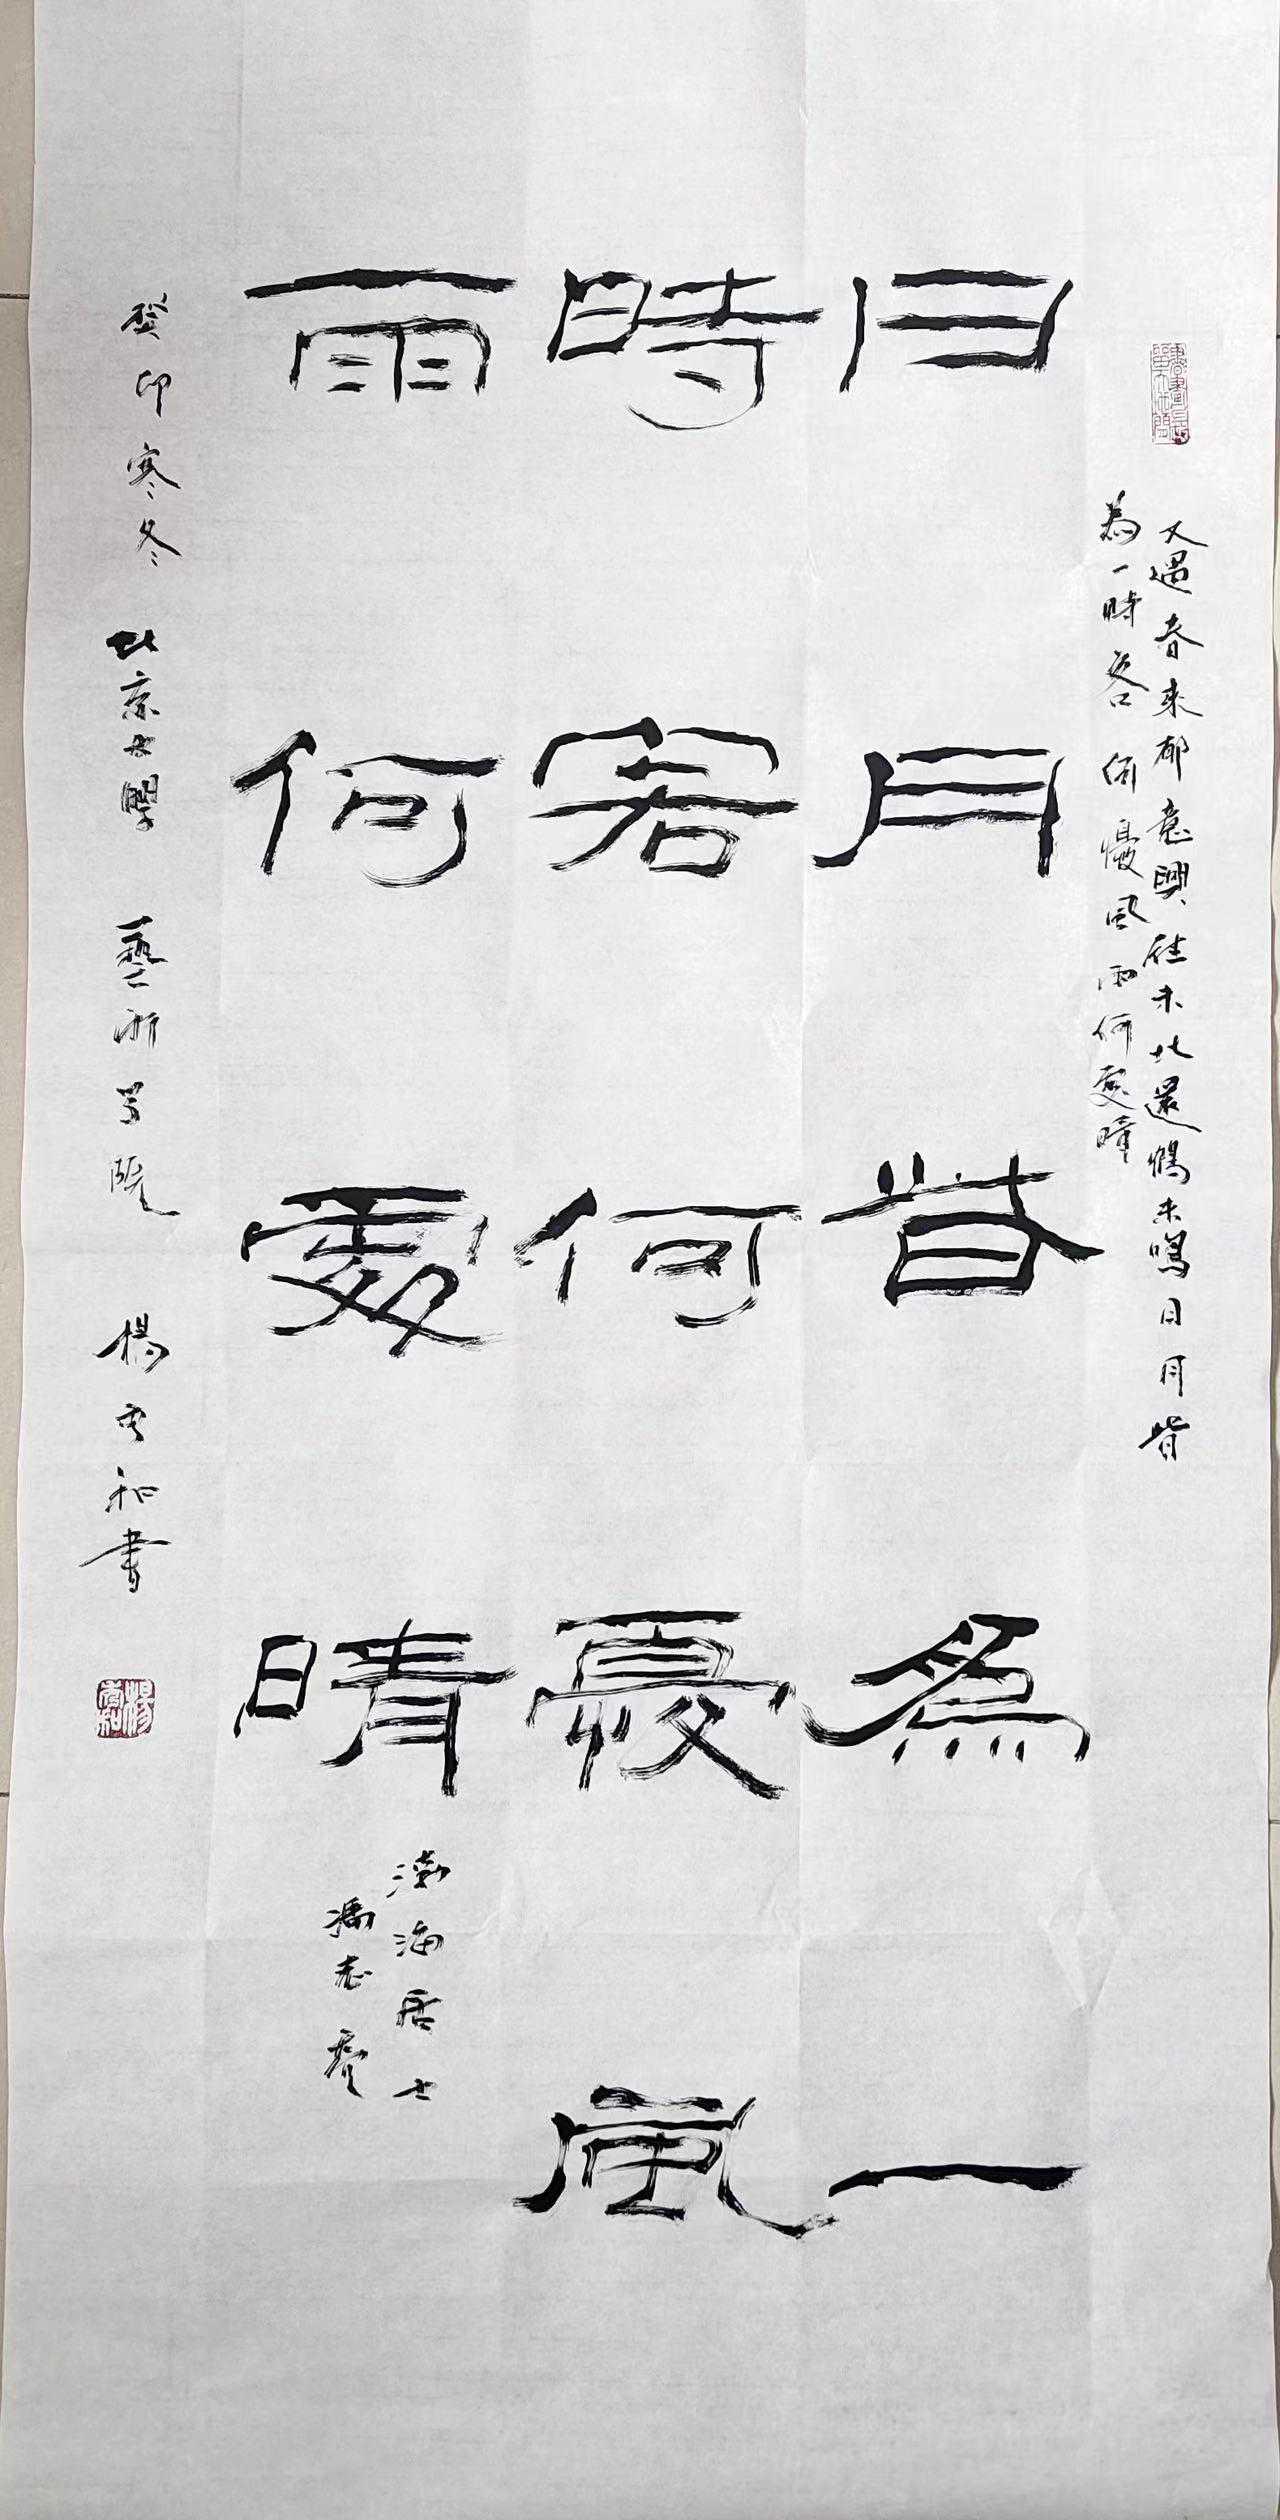 又遇春來郁意興雁未北還未鳴日月皆
為一時客何憂風雨何處晴
日月皆為一
時客何憂風
雨何處晴
渤海居士
馮志
癸卯寒冬 北京大學 藝術學院 楊和書